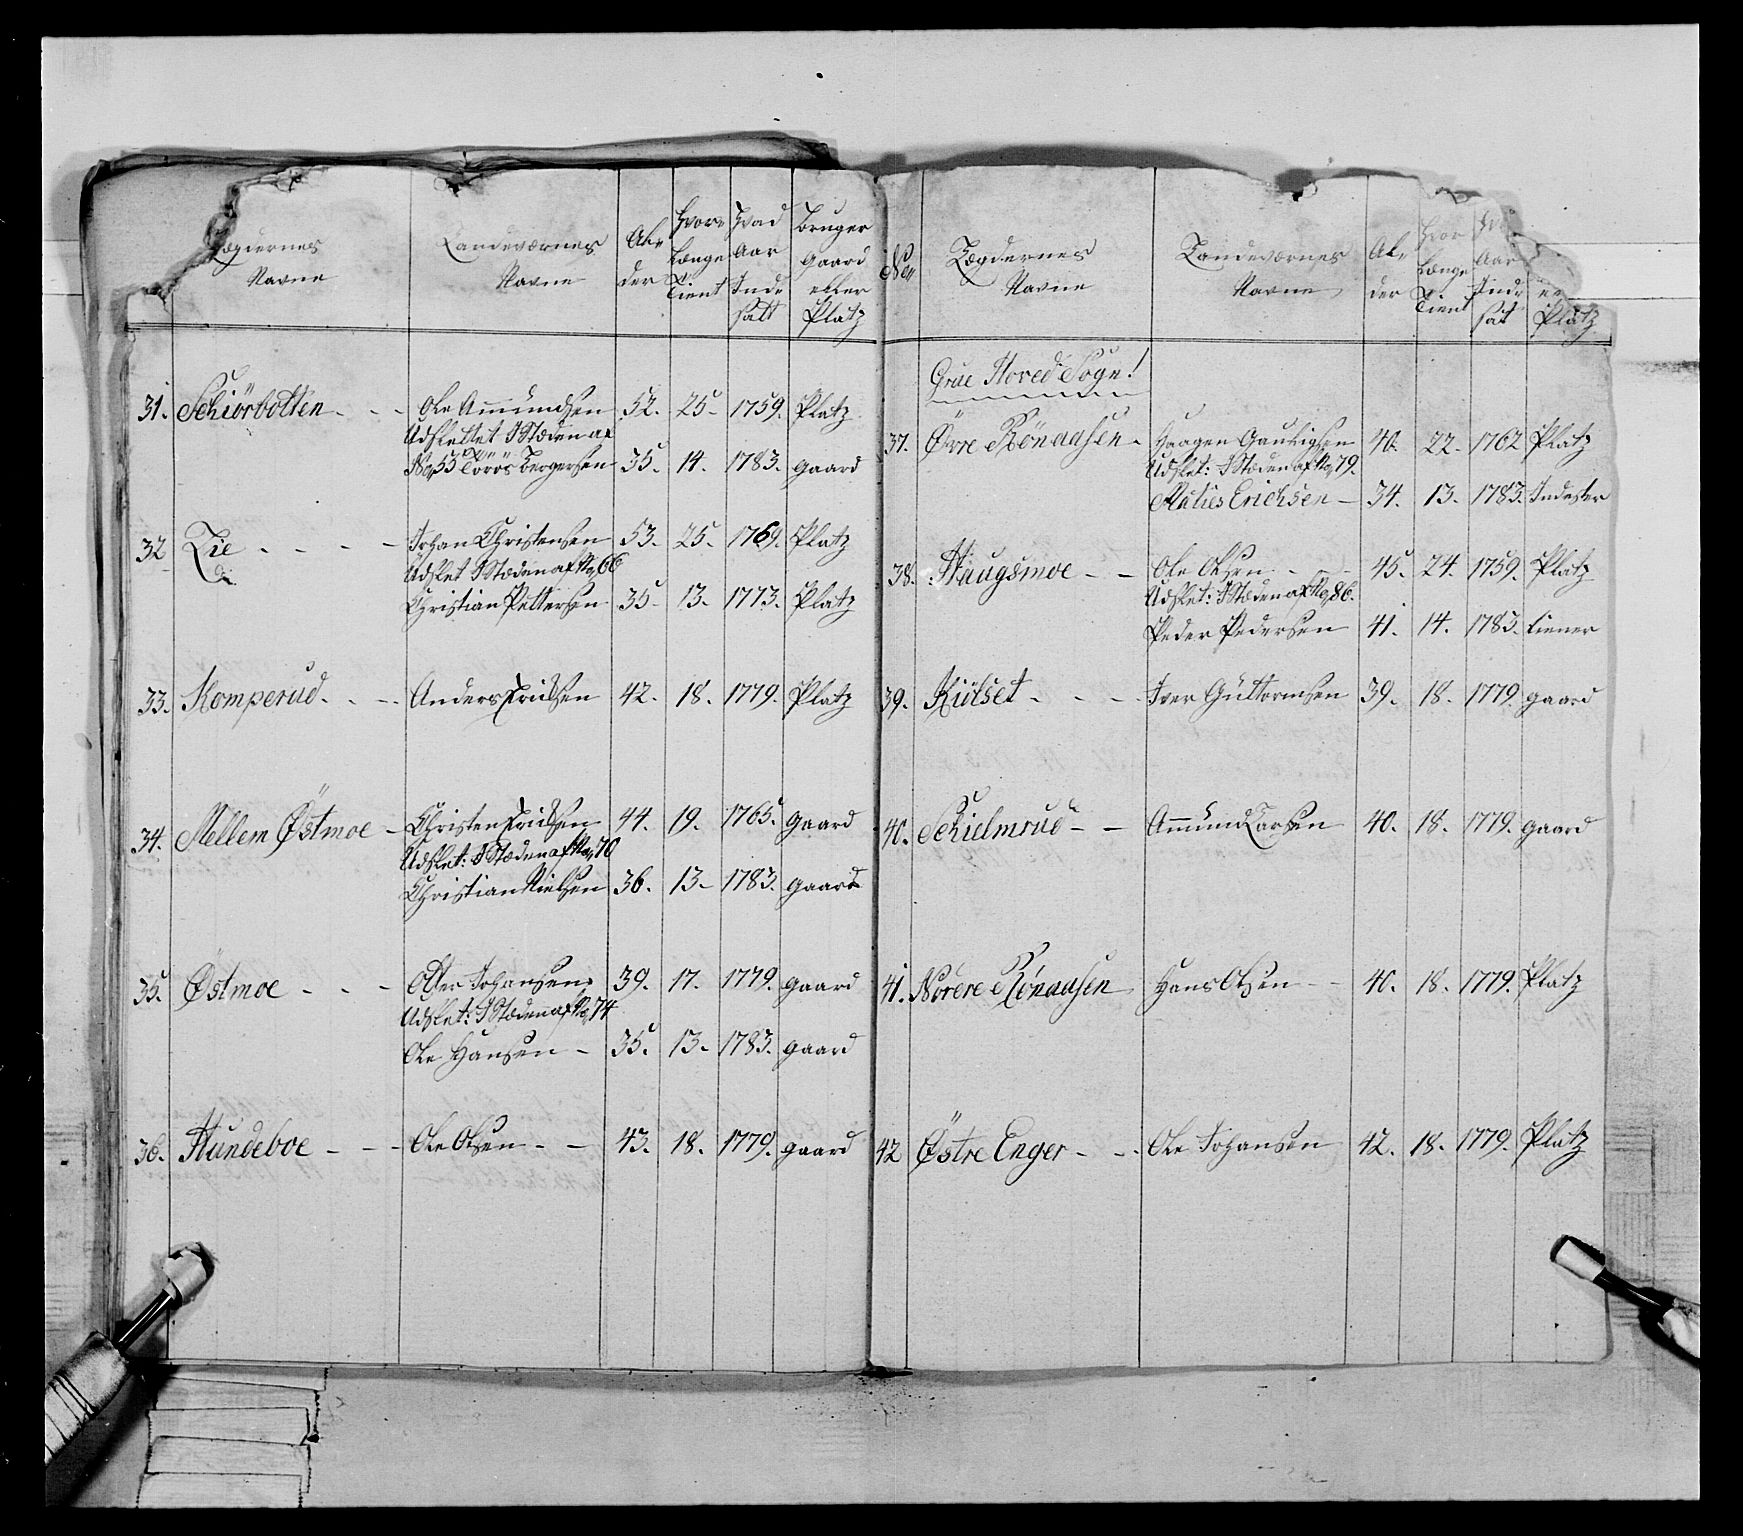 Lægdernes Navne Landeværnes Navne Al- der Hvor Længe Tient Hvad Aar Ind- satt Bruger gaard eller Platz
31. Schiörbotten - - - Ole Amundsen 52. 25- 1759. Platz
Udslettet I Stæden af
No 55 Törös Bergersen 35. 14. 1783. gaard
32 Lie - - - - Johan Christensen 53. 25. 1769. Platz
Udslet I Stæden af No 66
Christian Pettersen 35- 13. 1773. Platz
33. Komperud. - -- Anders Erichsen 42. 18. 1779. Platz
34. Mellem Østmoe - Christen Erichsen 44. 19. 1765. gaard
Udslet: I Stæden af No 70
Christian Nielsen 36. 13- 1783. gaard
35. Østmoe - - - Olter Johansen 39. 17. 1779. gaard
Udslet: I Stæden af No 74
Ole Hansen - 35. 13- 1783. gaard
36. Hundeboe - - - Ole Olsen - - 43. 18. 1779. gaard
No Lægdernes Navne Landeværnes Navne Al- der Hvor Længe Tient Aar Ind- sat Platz
Grue Hoved Sogn!
37. Øvre Rønaasen - Haagen Gaustigsen 40. 22. 1762 Platz
Udslet: I Stæden af No 79.
Maties Erichsen - 34. 13. 1783. Inderster
38. Haugsmoe - - Ole Olsen - - 45. 24. 1759. Platz
Udslet: I Stæden af No 86.
Peder Pedersen 41. 14. 1783. tiener
39. Kiölset - - - Iver Guttormsen 39. 18. 1779. gaard
40. Schielmrud - - Amund Larsen 40. 18. 1779. gaard
41. Nørere Rønaasen Hans Olsen - - 40. 18. 1779. Platz
42 Østre Enger - - Ole Johansen 42. 18. 1779. Platz